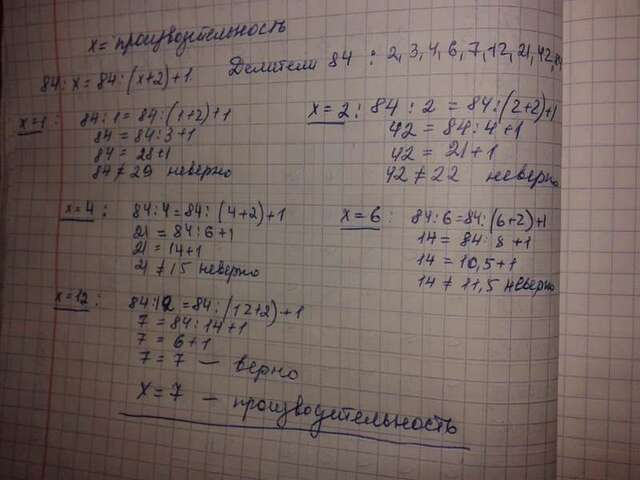 x = производительность
84 : x = 84 : (x+2) + 1
Делители 84 : 2, 3, 4, 6, 7, 12, 21, 42, 84
x=1 : 84 : 1 = 84 : (1+2) + 1
84 = 84 : 3 + 1
84 = 28 + 1
84 ≠ 29 неверно
x = 2 : 84 : 2 = 84 : (2+2) + 1
42 = 84 : 4 + 1
42 = 21 + 1
42 ≠ 22 неверно
x=4 : 84 : 4 = 84 : (4+2) + 1
21 = 84 : 6 + 1
21 = 14 + 1
21 ≠ 15 неверно
x = 6 : 84 : 6 = 84 : (6+2) + 1
14 = 84 : 8 + 1
14 = 10,5 + 1
14 ≠ 11,5 неверно
x=12 : 84 : 12 = 84 : (12+2) + 1
7 = 84 : 14 + 1
7 = 6 + 1
7 = 7 — верно
x = 7 — производительность